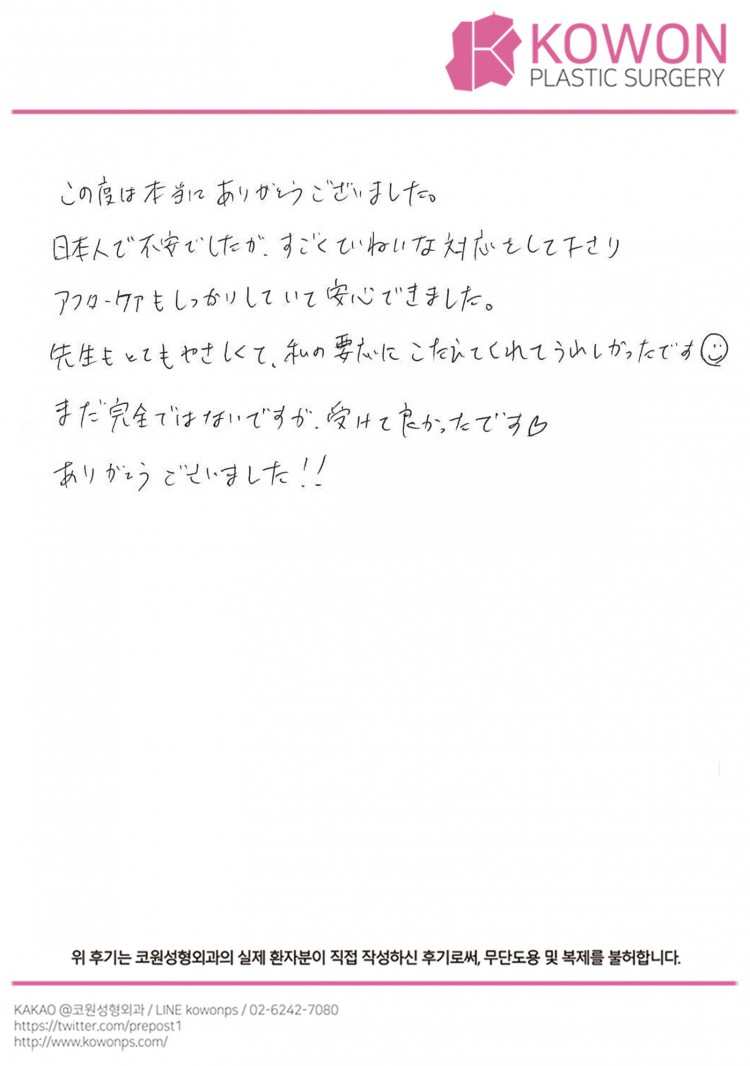 KOWON
PLASTIC SURGERY
この度は本当にありがとうございました。
日本人で不安でしたが、すごくていねいな対応をして下さり
アフターケアもしっかりしていて安心できました。
先生もとてもやさしくて、私の要応にこたえてくれてうれしかったです☺
まだ完全ではないですが、受けて良かったです♡
ありがとうございました!!
위 후기는 코원성형외과의 실제 환자분이 직접 작성하신 후기로써, 무단도용 및 복제를 불허합니다.
KAKAO @코원성형외과 / LINE kowonps / 02-6242-7080
https://twitter.com/prepost1
http://www.kowonps.com/